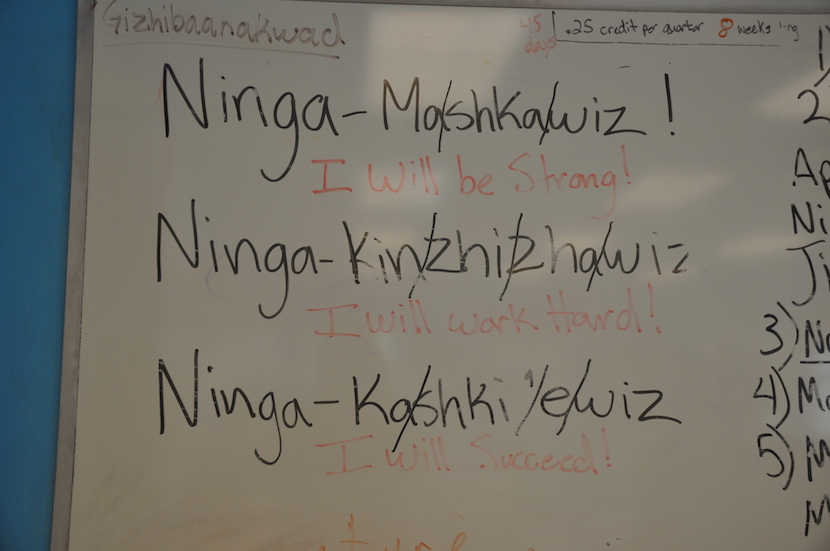 Gizhibaanakwad
45 days
.25 credit per quarter 8 weeks
Ninga-Ma/shka/wiz!
I will be Strong!
Ninga-Kin/zhi/zha/wiz
I will work Hard!
Ninga-Ka/shki'/e/wiz
I will Succeed!
1)
2
Ap
Ni
Ji
3) No
4) Ma
5) M
M